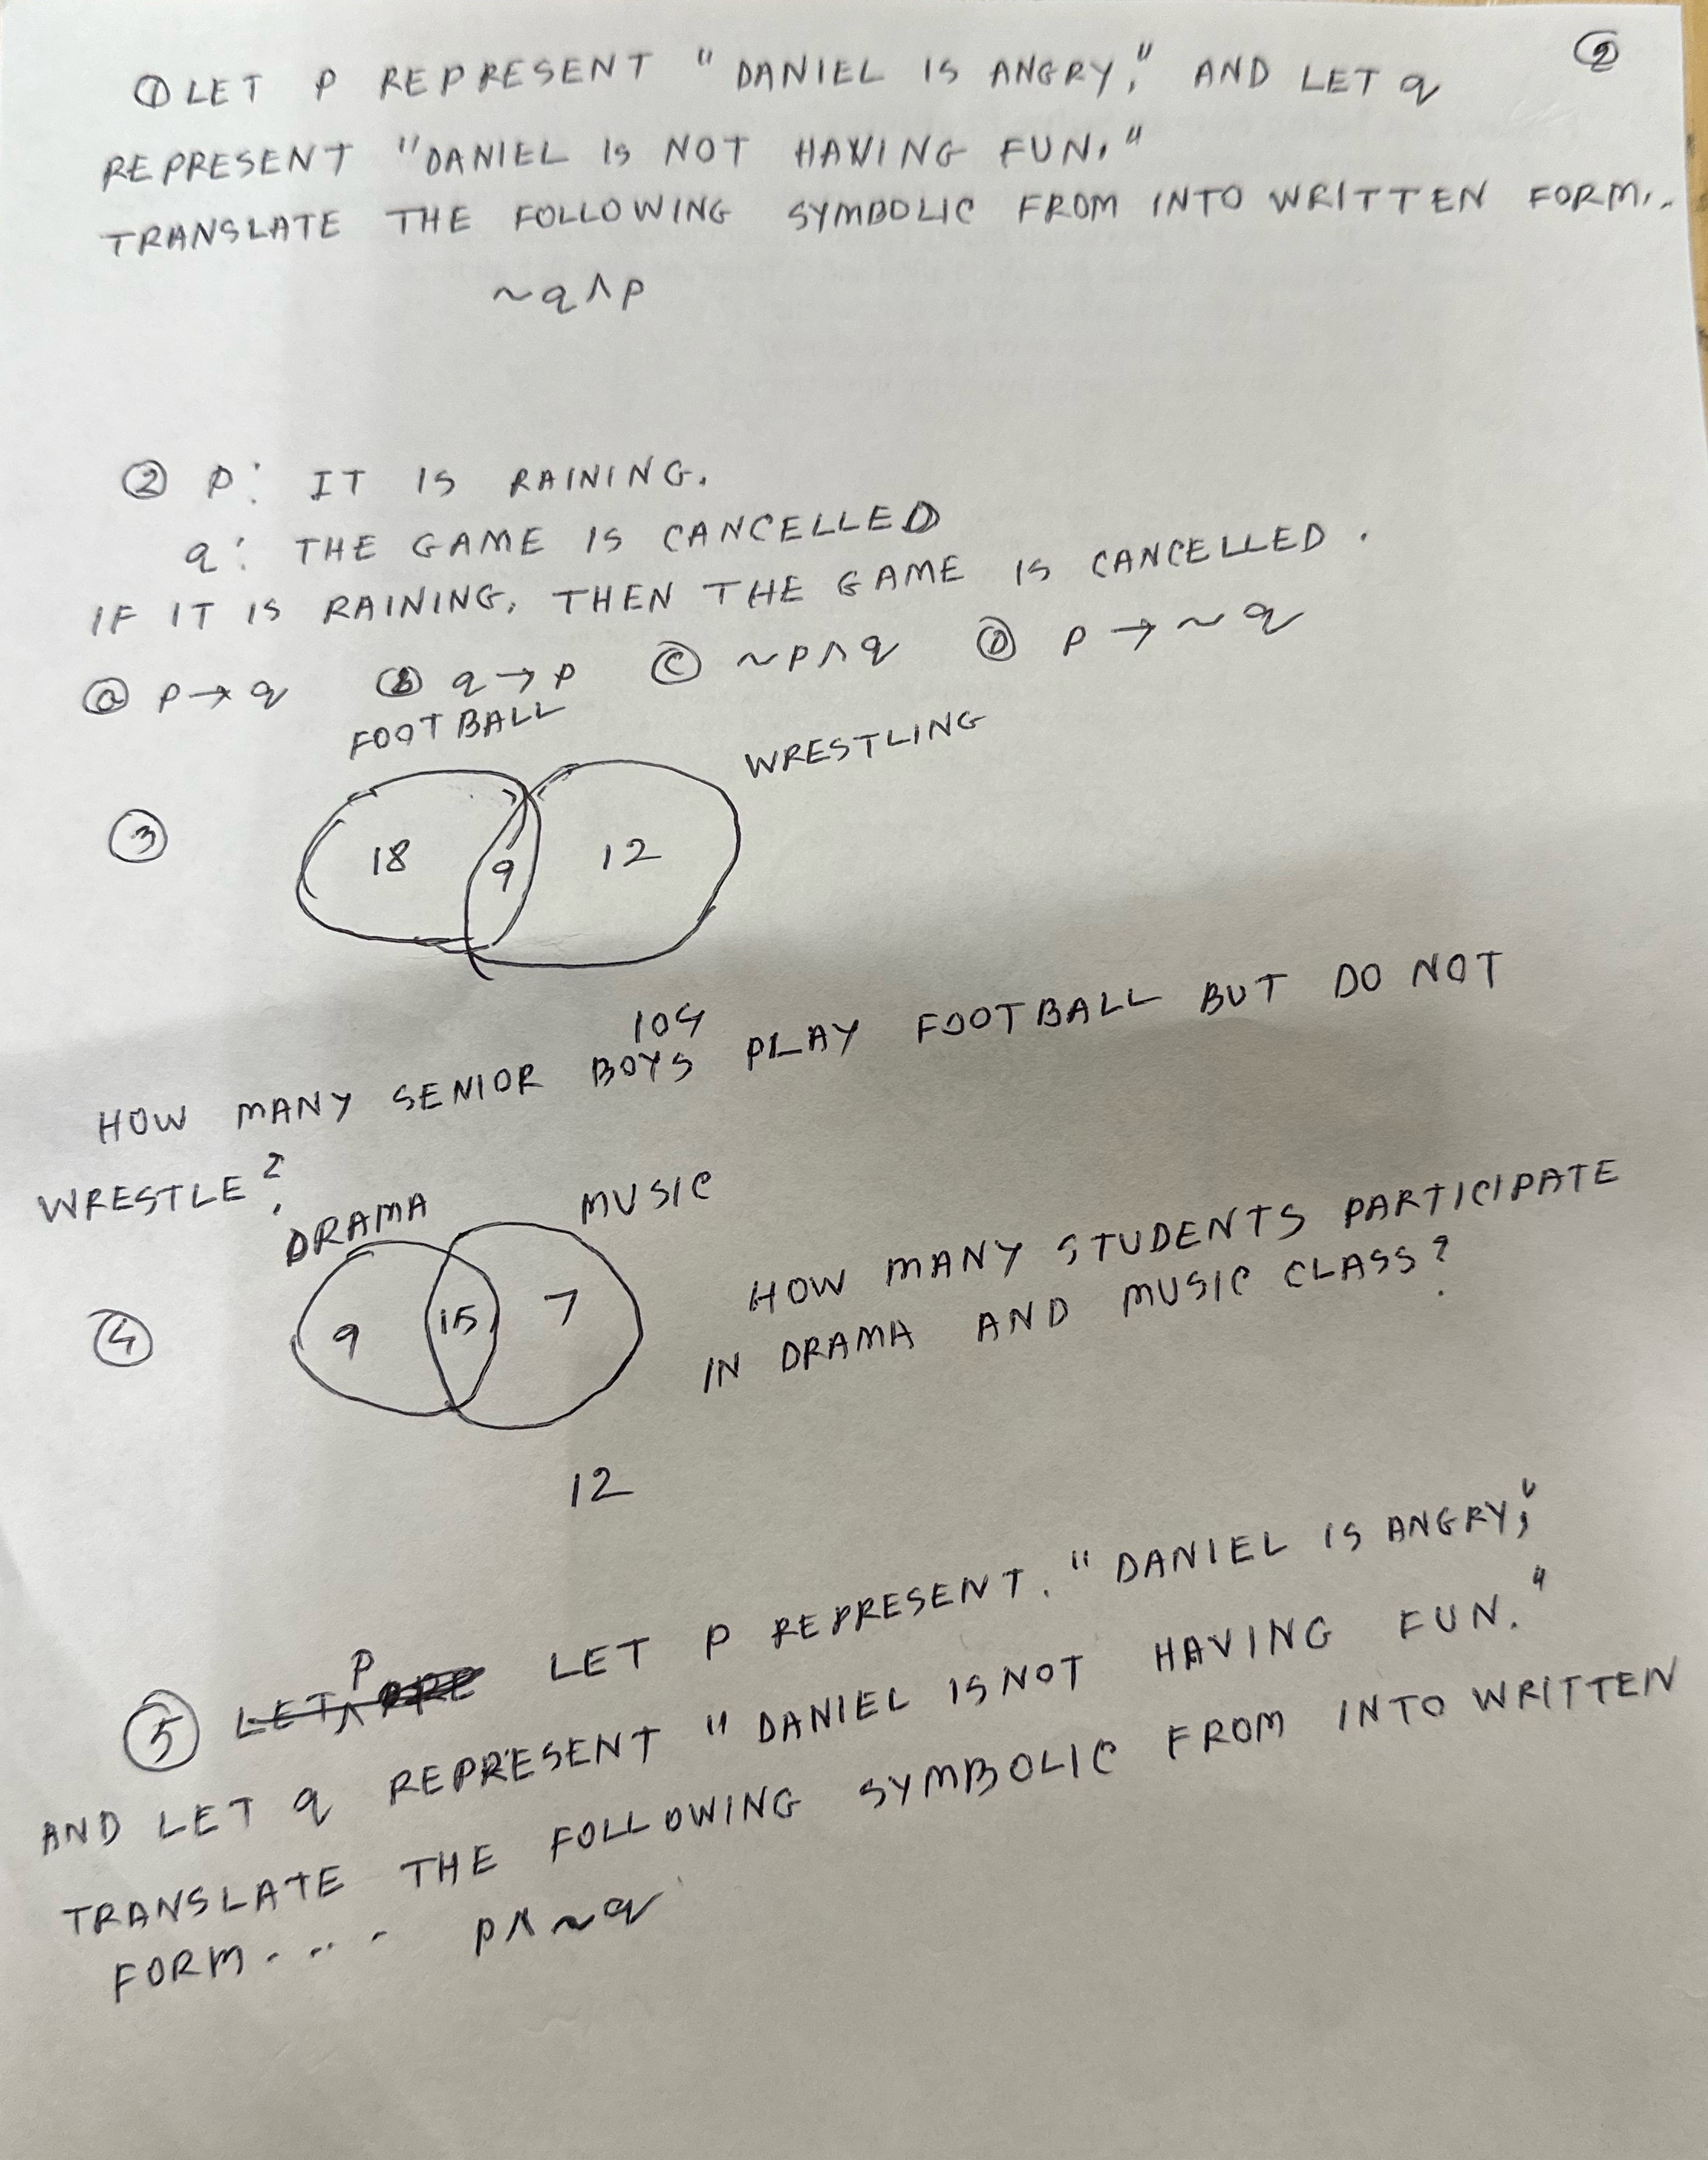 ②
① LET P REPRESENT "DANIEL IS ANGRY," AND LET q
REPRESENT "DANIEL IS NOT HAVING FUN."
TRANSLATE THE FOLLOWING SYMBOLIC FROM INTO WRITTEN FORM..
~q∧p
② p: IT IS RAINING.
q: THE GAME IS CANCELLED
IF IT IS RAINING, THEN THE GAME IS CANCELLED.
ⓐ p→q Ⓑ q→p Ⓒ ~p∧q Ⓓ p→~q
FOOTBALL
WRESTLING
③
18 9 12
104
HOW MANY SENIOR BOYS PLAY FOOTBALL BUT DO NOT
WRESTLE?
DRAMA MUSIC
④
9 15 7
HOW MANY STUDENTS PARTICIPATE
IN DRAMA AND MUSIC CLASS?
12
⑤ LET P LET P REPRESENT. "DANIEL IS ANGRY,"
AND LET q REPRESENT "DANIEL IS NOT HAVING FUN."
TRANSLATE THE FOLLOWING SYMBOLIC FROM INTO WRITTEN
FORM.... p∧~q